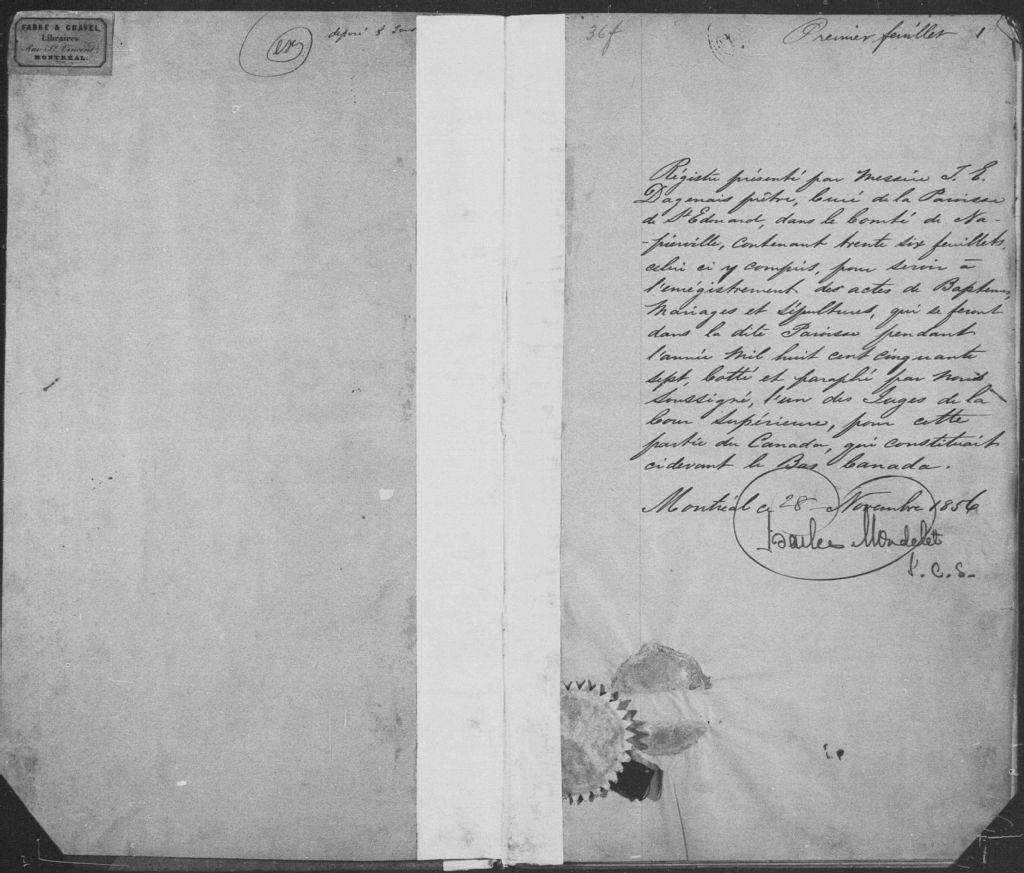 FABRE & GRAVEL
Libraires
Rue St. Vincent
MONTRÉAL.
déposé 8
36f
Premier feuillet 1
Régistre présenté par Messire J. E.
Dagenais prêtre, Curé de la Paroisse
de St Edouard, dans le Comté de Na-
-pierville, contenant trente six feuillets,
celui ci y compris, pour servir à
l'enrégistrement des actes de Baptêmes,
Mariages et Sépultures, qui se feront
dans la dite Paroisse pendant
l'année Mil huit cent cinquante
sept, Cotté et paraphé par Nous
Soussigné, l'un des Juges de la
Cour Supérieure, pour cette
partie du Canada, qui constituait
cidevant le Bas Canada.
Montréal ce 28 Novembre 1856
Charles Mondelet
J. C. S.